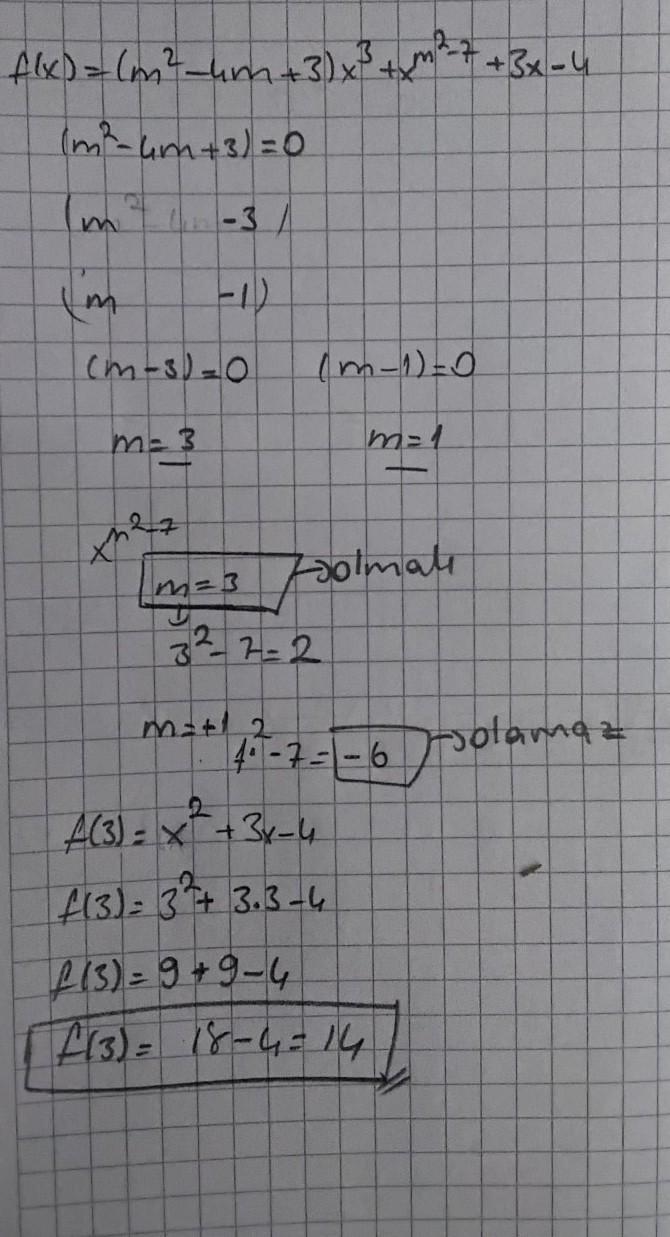 f(x) = (m² - 4m + 3)x³ + x^(m²-7) + 3x - 4
(m² - 4m + 3) = 0
(m -3)
(m -1)
(m-3) = 0 (m-1) = 0
m = 3 m = 1
x^(m²-7)
m = 3 → olmalı
3² - 7 = 2
m = +1
1² - 7 = -6 → olamaz
f(3) = x² + 3x - 4
f(3) = 3² + 3.3 - 4
f(3) = 9 + 9 - 4
f(3) = 18 - 4 = 14